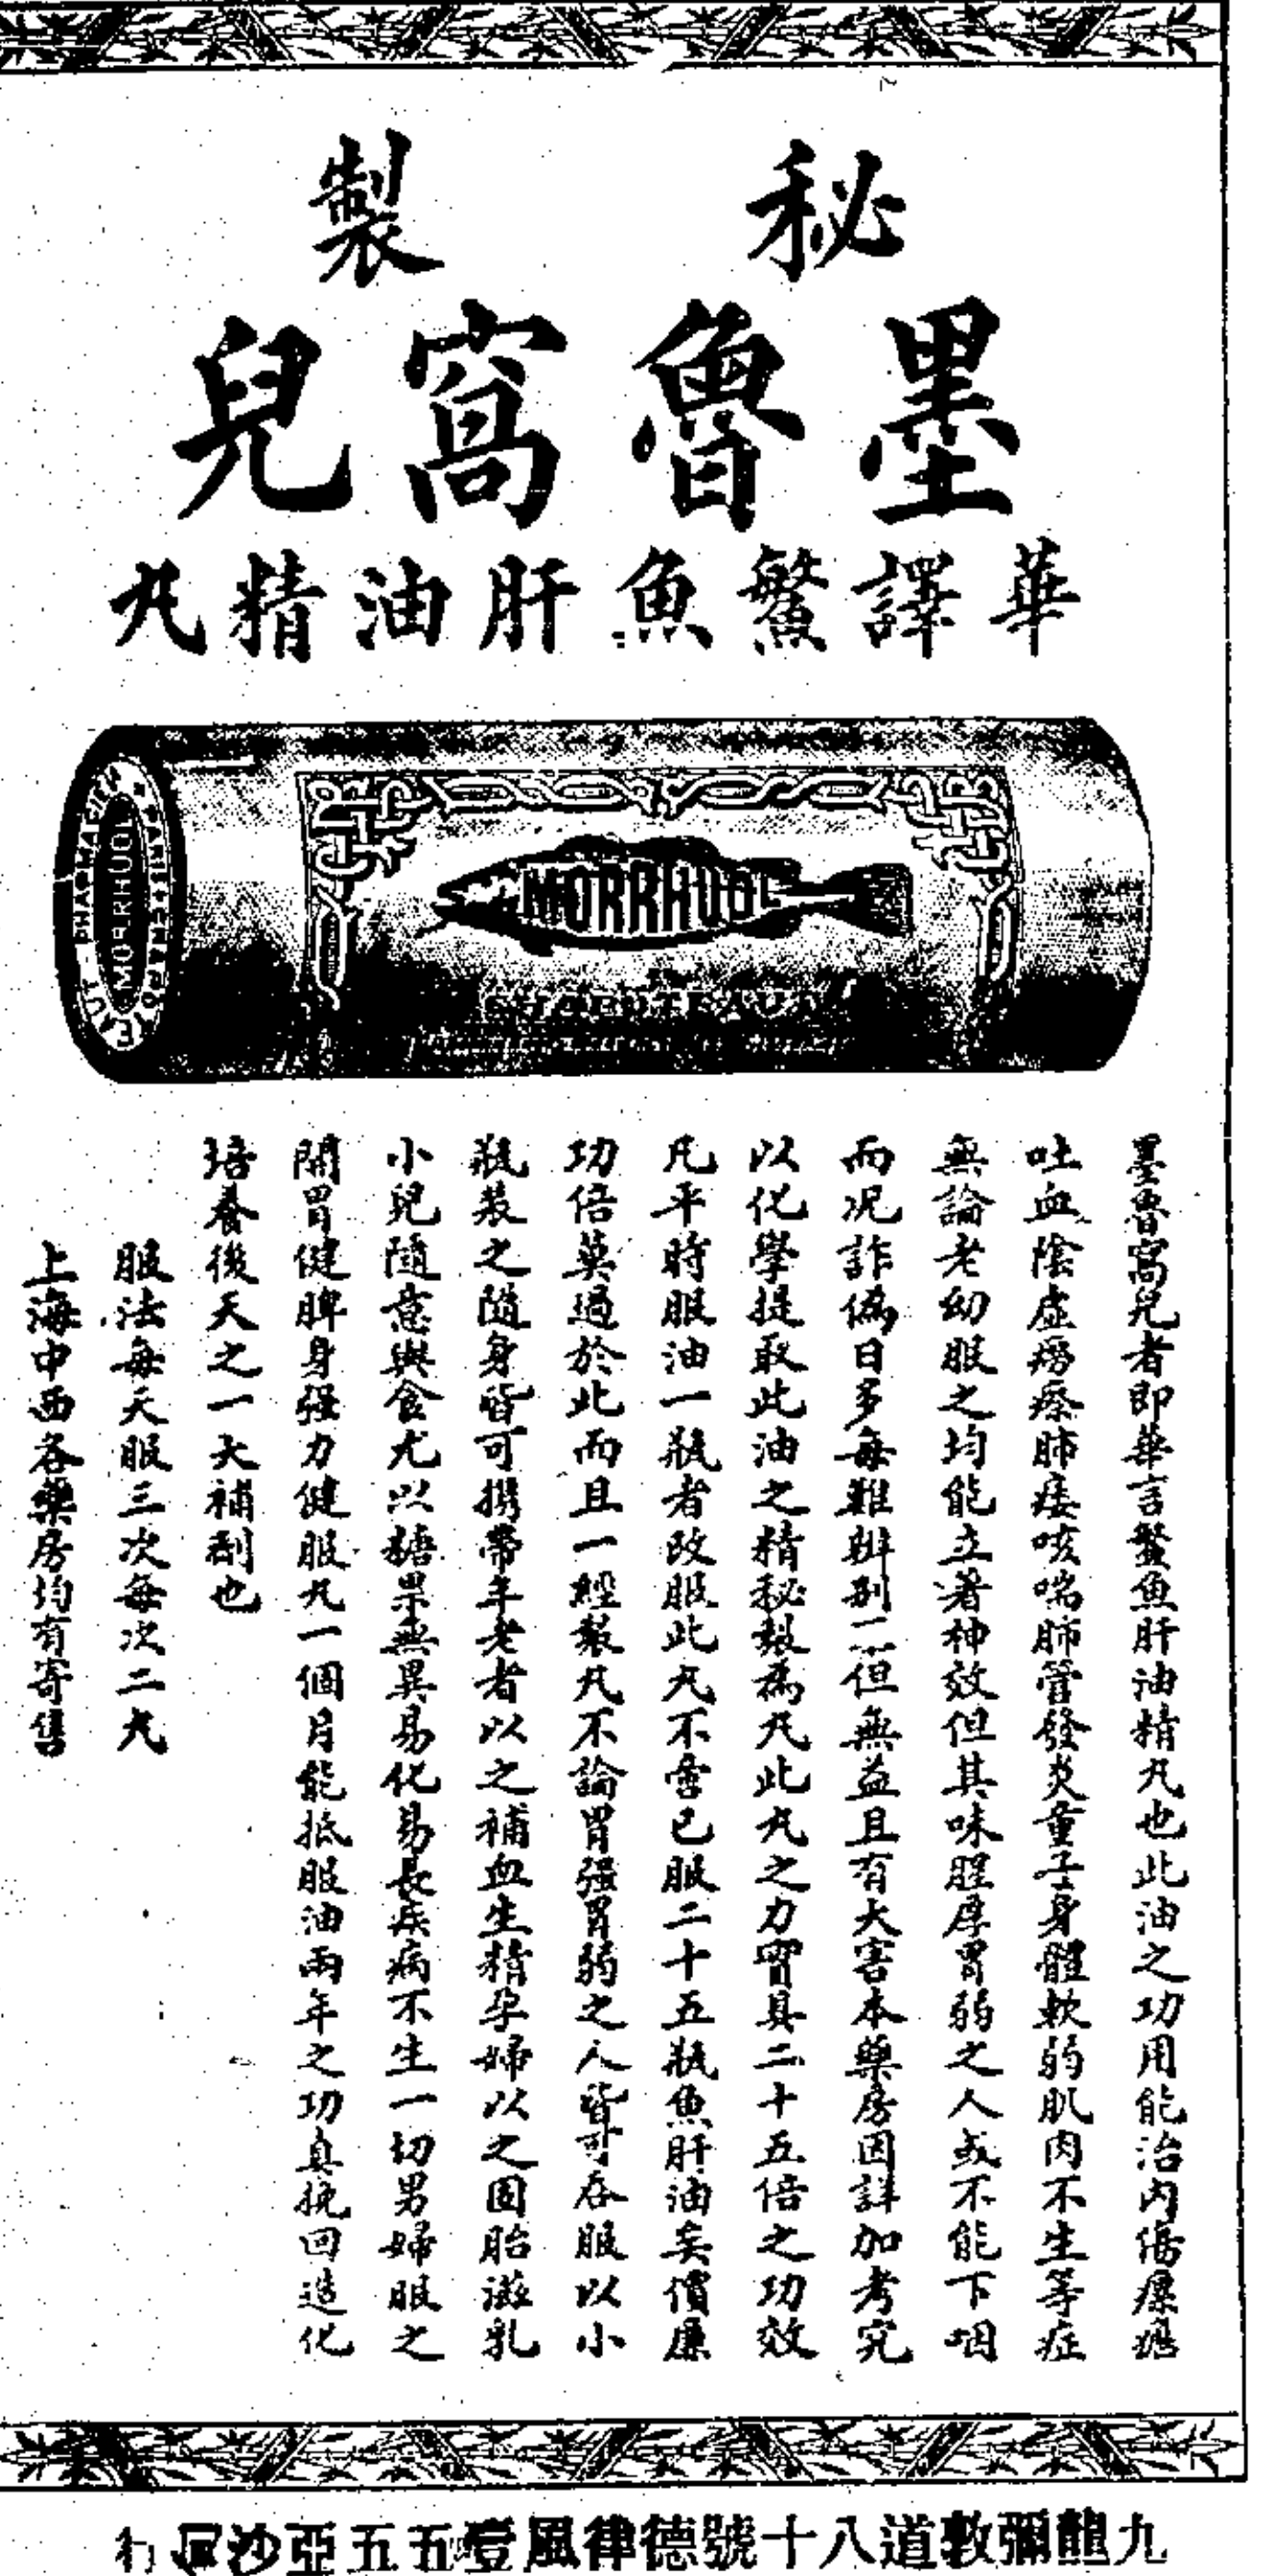 秘製
墨魯窩兒
華譯鰵魚肝油精丸
PHARMACIEN
MORRHUOL
MORRHUOL
CHAPOTEAUT
墨魯窩兒者即華言鰵魚肝油精丸也此油之功用能治內傷瘰癧
吐血陰虛癆瘵肺痿咳喘肺管發炎童子身體軟弱肌肉不生等症
無論老幼服之均能立著神效但其味腥厚胃弱之人或不能下咽
而况詐偽日多每難辨別不但無益且有大害本藥房因詳加考究
以化學提取此油之精秘製為丸此丸之力實具二十五倍之功效
凡平時服油一瓶者改服此丸不啻已服二十五瓶魚肝油矣價廉
功倍莫過於此而且一經製丸不論胃强胃弱之人皆可吞服以小
瓶裝之隨身皆可携帶年老者以之補血生精孕婦以之固胎滋乳
小兒隨意與食尤以糖果無異易化易長疾病不生一切男婦服之
開胃健脾身强力健服丸一個月能抵服油兩年之功真挽回造化
培養後天之一大補劑也
服法每天服三次每次二丸
上海中西各藥房均有寄售
九龍彌敦道八十號德律風壹五五五亞沙